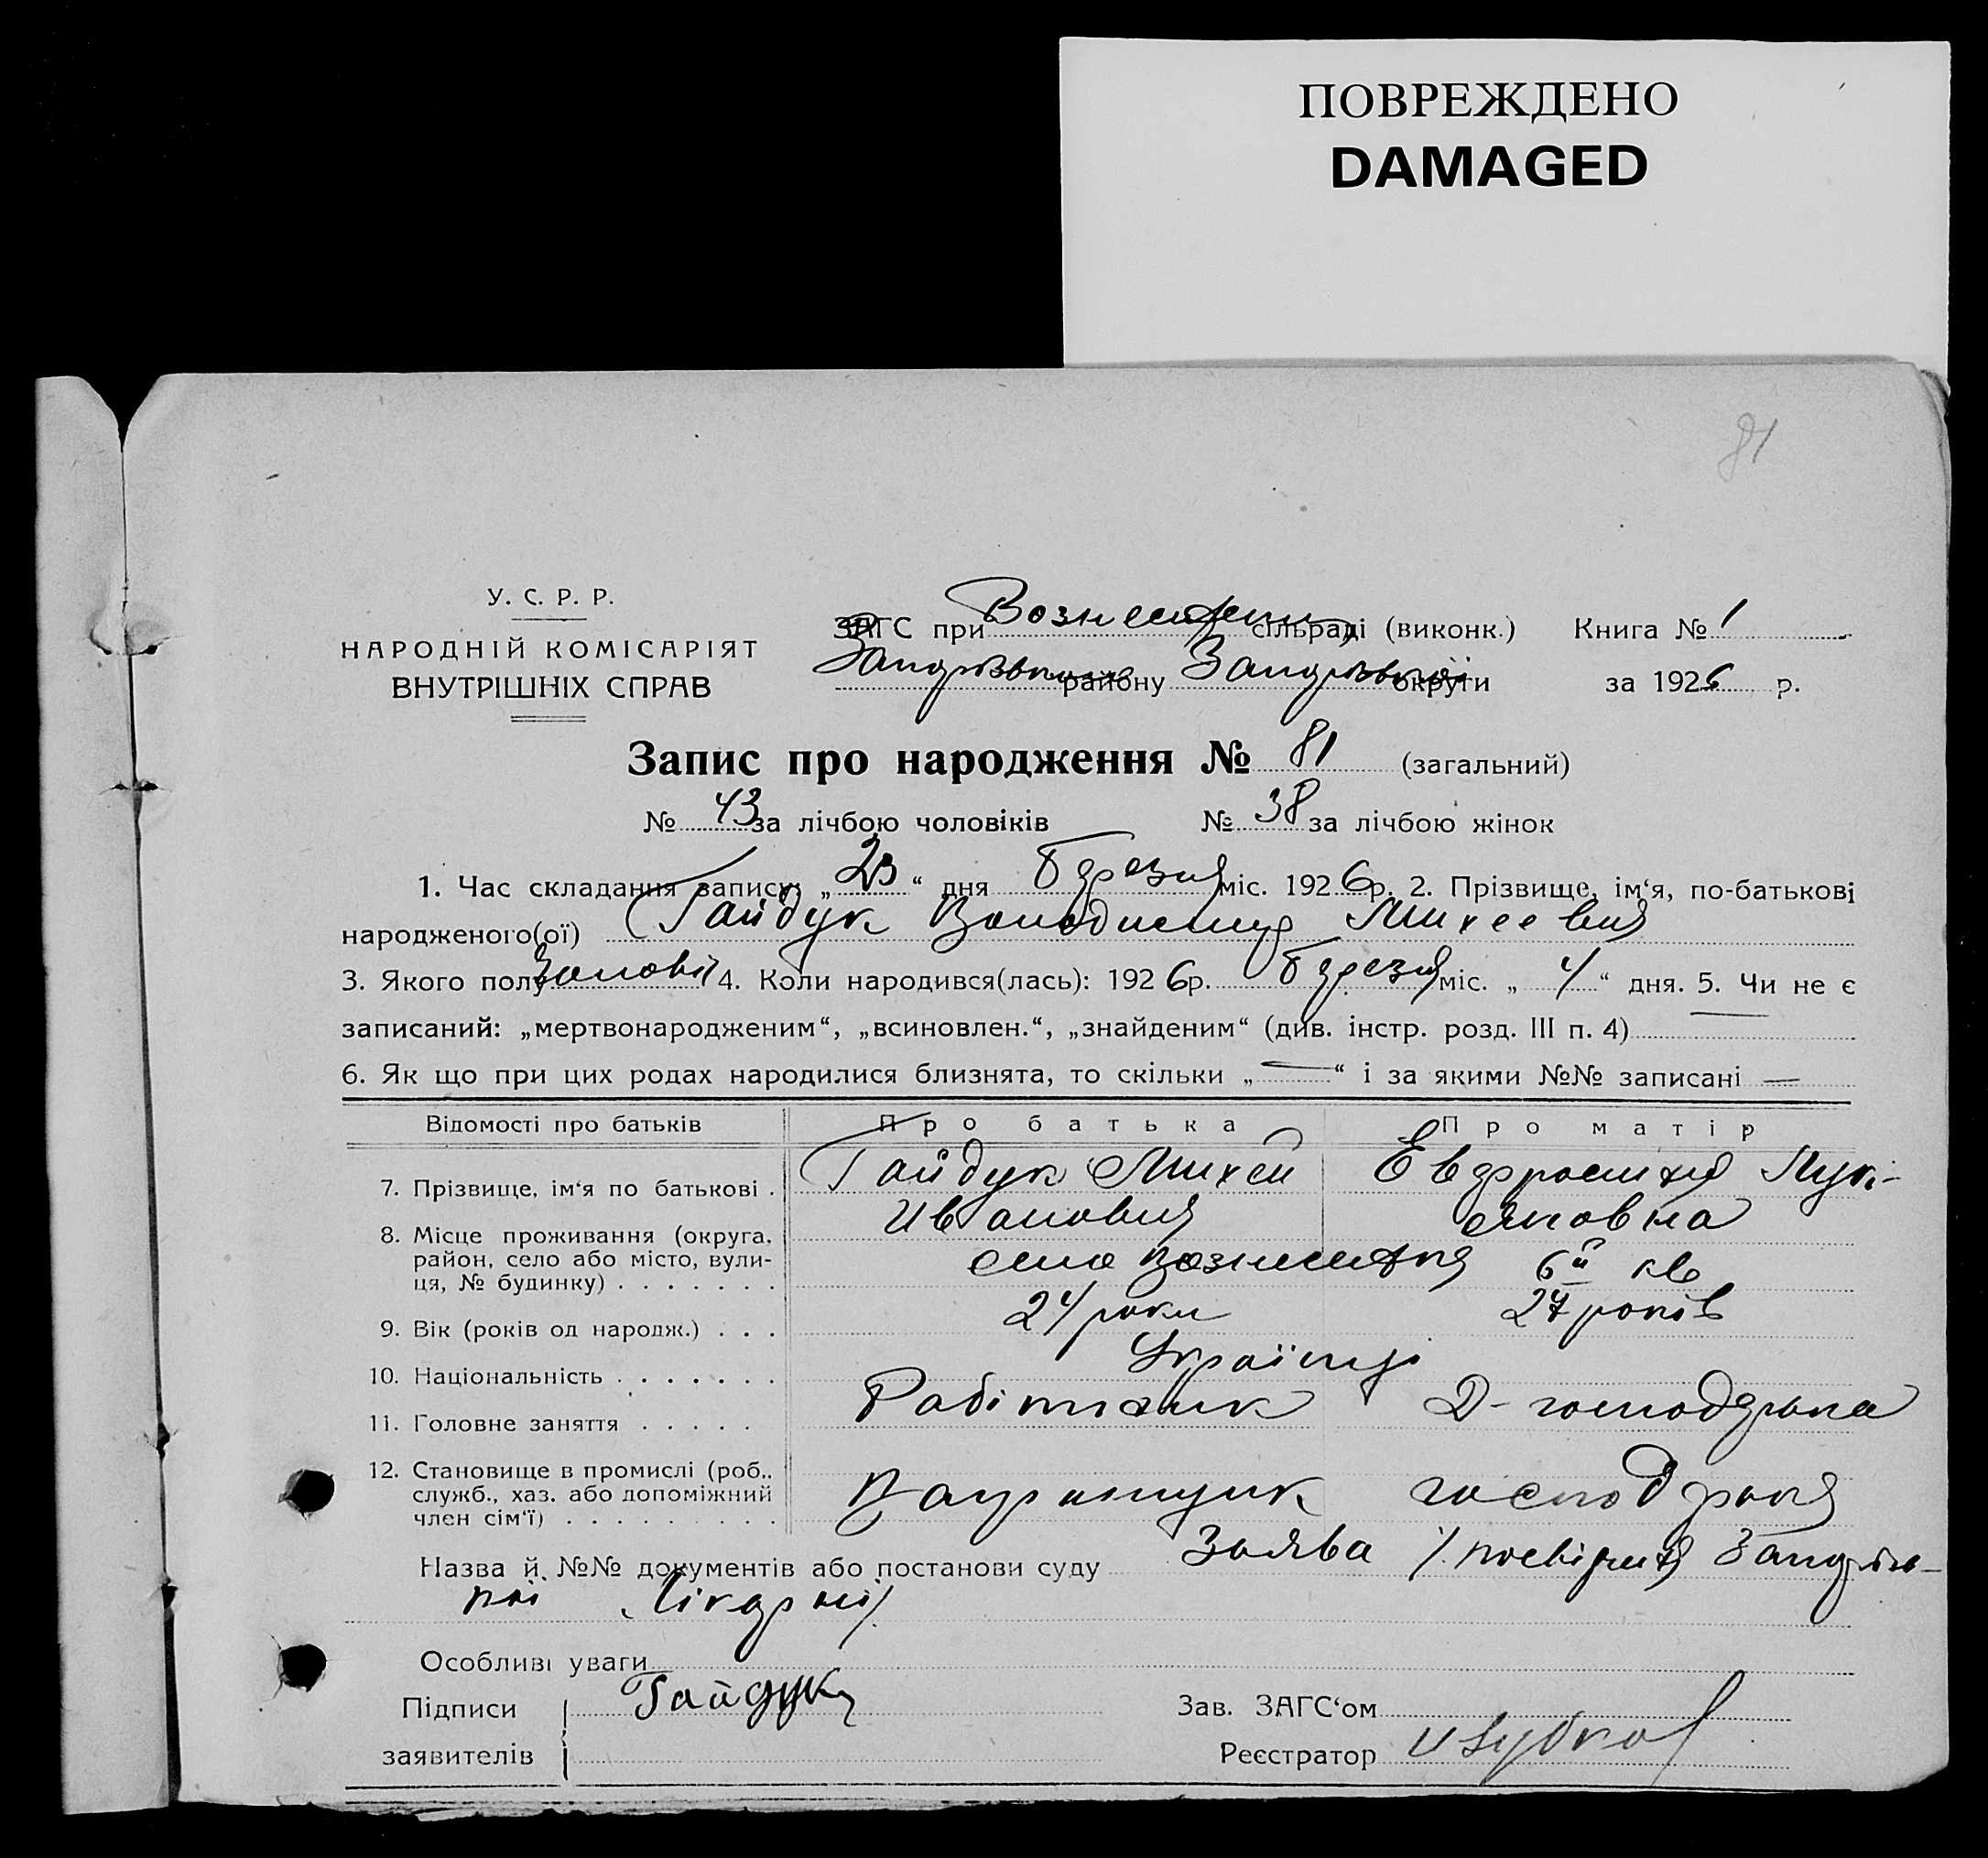 ПОВРЕЖДЕНО
DAMAGED
81
У. С. Р. Р.
НАРОДНІЙ КОМІСАРІЯТ
ВНУТРІШНІХ СПРАВ
ЗАГС при сільраді (виконк.) Книга № 1
району округи за 1926 р.
Запис про народження № 81 (загальний)
№ 43 за лічбою чоловіків № 38 за лічбою жінок
1. Час складання запису: „23“ дня Березня міс. 1926 р. 2. Прізвище, ім‘я, по-батькові
народженого(ої) Гайдук Володимир Михеевич
3. Якого полу 4. Коли народився(лась): 1926 р. Березня міс. „4“ дня. 5. Чи не є
записаний: „мертвонародженим“, „всиновлен.“, „знайденим“ (див. інстр. розд. III п. 4) —
6. Як що при цих родах народилися близнята, то скільки „—“ і за якими №№ записані —
Відомості про батьків Про батька Про матір
7. Прізвище, ім‘я по батькові . Гайдук Михей Евфросинія Лукі-
Иванович яновна
8. Місце проживання (округа,
район, село або місто, вули-
ця, № будинку) . . . . . . . село Вознесенка 6й кв
9. Вік (років од народж.) . . . 24 роки 24 років
10. Національність . . . . . . . Українці
11. Головне заняття . . . . . Робітник Д-господарька
12. Становище в промислі (роб.,
служб., хаз. або допоміжний
член сім‘ї) . . . . . . . . .
Назва й №№ документів або постанови суду Заява /. посвідчення Запоріз-
кої лікарні/.
Особливі уваги
Підписи Гайдук Зав. ЗАГС‘ом
заявителів Реєстратор